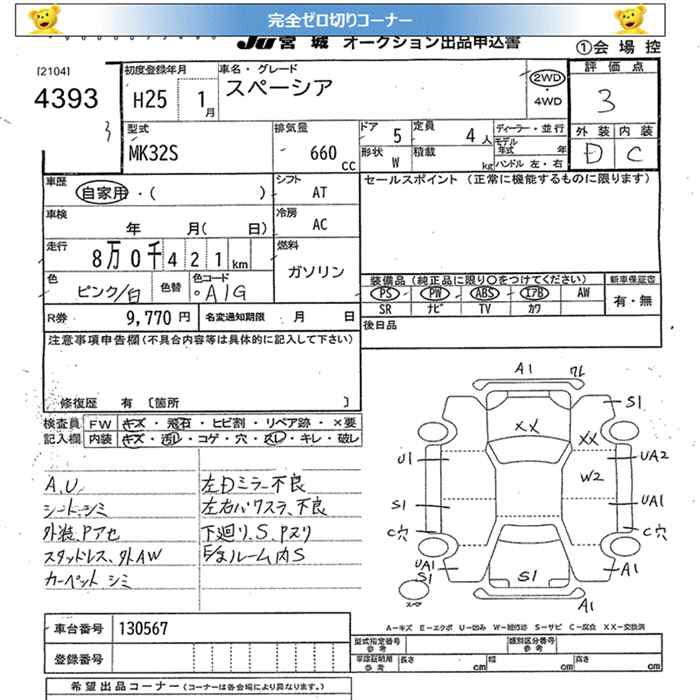 完全ゼロ切りコーナー
JU宮城 オークション出品申込書
①会場控
[2104]
4393
3
初度登録年月
H25 1月
車名・グレード
スペーシア
2WD
・
4WD
評価点
3
外装 内装
D C
型式
MK32S
排気量
660 cc
ドア 5
定員 4人
形状 W
積載 kg
ディーラー・並行
モデル年式 年
ハンドル 左・右
車歴
自家用・( )
シフト
AT
車検
年 月( 日)
冷房
AC
走行
8万0千421km
燃料
ガソリン
色
ピンク/白
色替
色コード
A1G
R券 9,770円
名変通知期限 月 日
セールスポイント (正常に機能するものに限ります)
装備品(純正品に限り○をつけてください)
新車保証書
PS PW ABS エアB AW
有・無
SR ナビ TV カワ
後日品
注意事項申告欄(不具合内容等は具体的に記入して下さい)
修復歴 有 〔箇所 〕
検査員記入欄
FW キズ・飛石・ヒビ割・リペア跡・×要
内装 キズ・汚レ・コゲ・穴・スレ・キレ・破レ
A.U
シート、シミ
外装、Pアセ
スタッドレス、外AW
カーペットシミ
左Dミラー不良
左右パワスラ、不良
下廻り、S、Pスリ
E/gルーム内S
A1
S1
XX
XX
U1
UA2
W2
S1
UA1
C穴
C穴
UA1
S1
S1
A1
A1
スペア
A－キズ E－エクボ U－凹み W－補修跡 S－サビ C－腐食 XX－交換済
車台番号 130567
登録番号
型式指定番号
参考
類別区分番号
参考
車庫証明用
参考
長さ cm
幅 cm
高さ cm
希望出品コーナー (コーナーは各会場により異なります。)